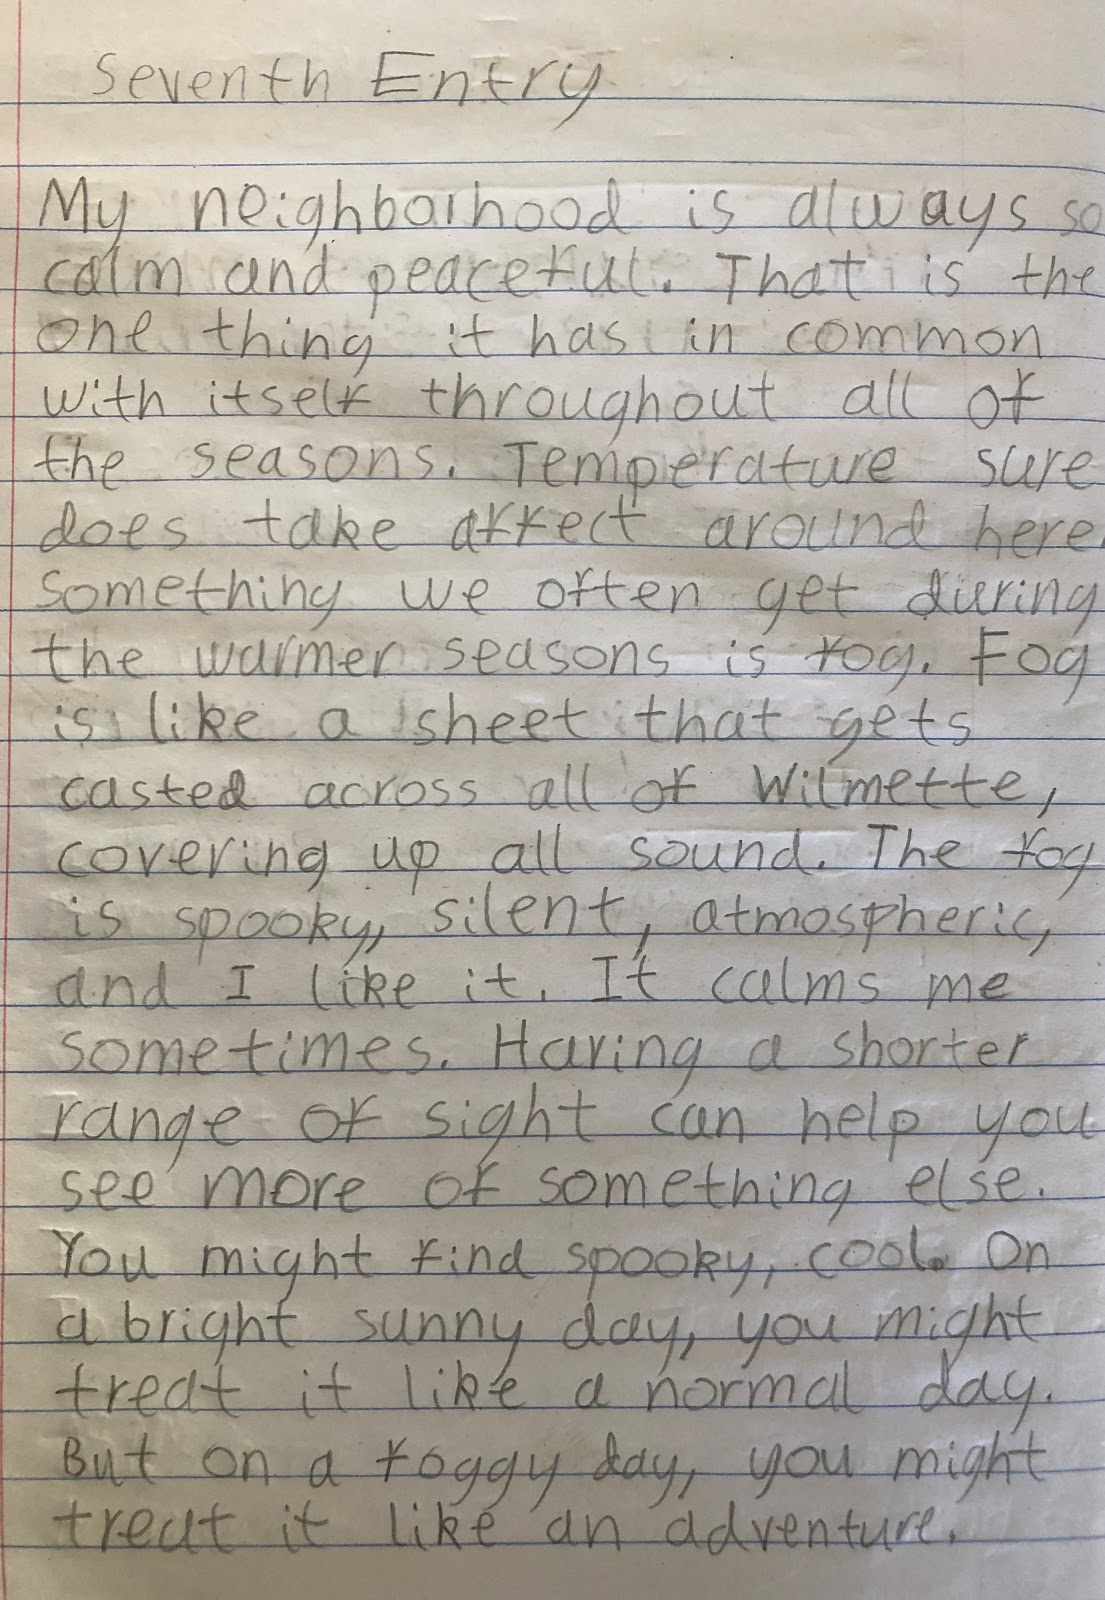 Seventh Entry
My neighborhood is always so
calm and peaceful. That is the
one thing it has in common
with itself throughout all of
the seasons. Temperature sure
does take affect around here.
Something we often get during
the warmer seasons is fog. Fog
is like a sheet that gets
casted across all of Wilmette,
covering up all sound. The fog
is spooky, silent, atmospheric,
and I like it. It calms me
sometimes. Having a shorter
range of sight can help you
see more of something else.
You might find spooky, cool. On
a bright sunny day, you might
treat it like a normal day.
But on a foggy day, you might
treat it like an adventure.